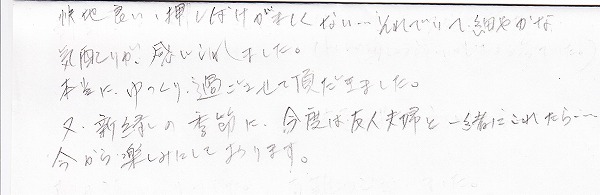 快地良い、押しつけがましくない…それでいて細やかな
気配りが、感じられました。
本当に、ゆっくり、過ごさせて頂だきました。
又、新緑の季節に、今度は友人夫婦と一緒にこれたら…
今から楽しみにしております。